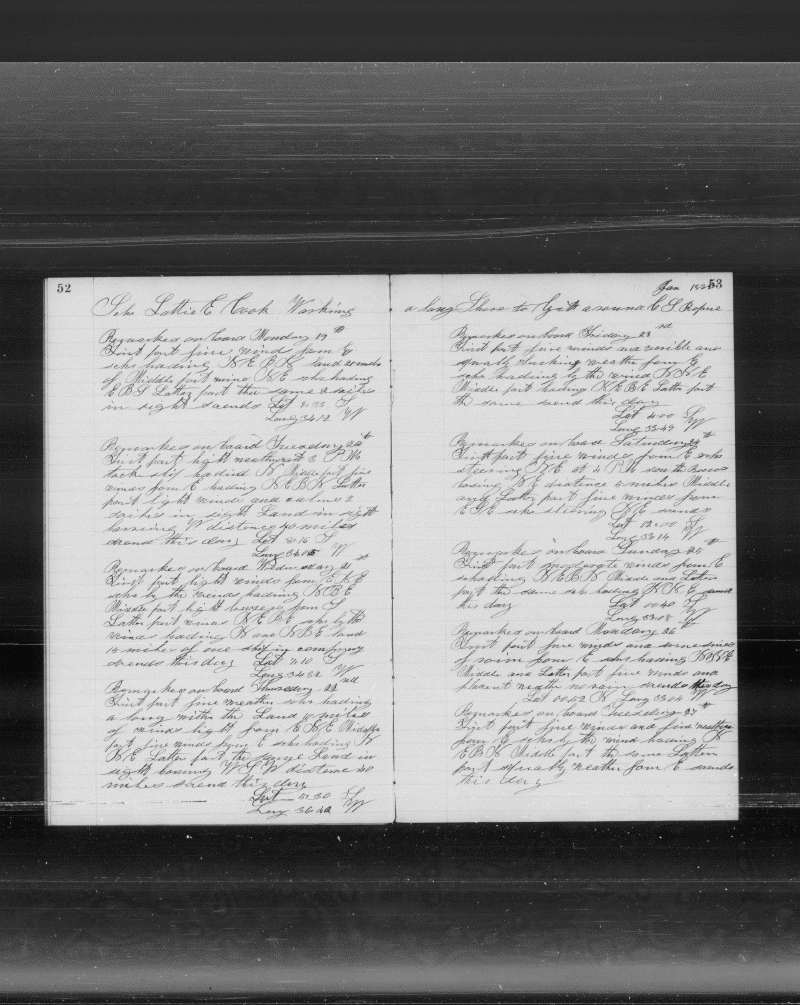 52
Schr Lottie E Cook Working
Remarkes on board Monday 19th
First part fine winds from E
schr heading N E B N land 20 miles
of Middle part wind N E schr heading
E B S Latter part the same 2 sailes
in sight so ends Lat S
Long 34 12 W
Remarkes on board Tuesday 20th
First part light weather at 3 P M
tack ship headid N Middle part fine
winds from E heading N E B N Latter
part light winds and calms 2
sailes in sight Land in sight
bearing W distance 40 miles
so ends this day Lat 8 16 S
Long 34 05 W
Remarkes on board Wednesday 21st
First part light winds from E
schr by the winds heading N B E
Middle part light breezes from S
Latter part winds N E B E schr by the
winds heading N and N B E land
12 miles of one ship in company
so ends this day Lat 7 10 S
Long 34 32 W
Remarkes on board Thursday 22nd
First part fine weather schr heading
a long with the Land 10 miles
of winds light from E B E Middle
part fine winds from E schr heading N
B E Latter part the same Land in
sight bearing W S W distance 20
miles so end this day
Lat 5 30 S
Long 35 42 W
Jan 53
a long Shore to Gett around C S Roque
Remarkes on board Friday 23rd
First part fine winds and
squaly weather from E
schr heading by the wind N N E
Middle part heading N E B E Latter part
the same so end this day
Lat 4 00 S
Long 33 49 W
Remarkes on board Saturday 24th
First part fine winds from E schr
steering N E at 4 P M saw the Rocas
baring N E distance miles Middle
and Latter part fine winds from
E S E schr steering N E so ends
Lat 00 S
Long 33 14 W
Remarkes on board Sunday 25th
First part moderate winds from E
schr heading N E B N Middle and Latter
part the same schr heading N N E so ends
this day Lat 00 40 S
Long 33 18 W
Remarkes on board Monday 26th
First part fine winds and some squalls
of rain from E schr heading N B E
Middle and Latter part fine winds and
plesent weather no rain so ends this day
Lat 00 52 N Long 33 04 W
Remarkes on board Tuesday 27th
First part fine winds and fine weather
from E schr by the wind heading N
E B N Middle part the same Latter
part squaly weather from E so ends
this day